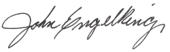 John Engelking